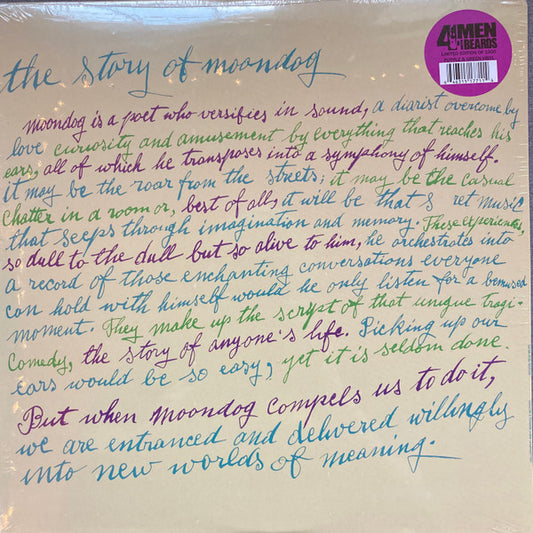 4 MEN
WITH
BEARDS
LIMITED EDITION OF 2300
PURPLE & GREEN VINYL
the story of moondog
Moondog is a poet who versifies in sound, a diarist overcome by
love curiosity and amusement by everything that reaches his
ears, all of which he transposes into a symphony of himself.
it may be the roar from the streets; it may be the casual
chatter in a room or, best of all, it will be that s ret music
that seeps through imagination and memory. These experiences,
so dull to the dull but so alive to him, he orchestrates into
a record of those enchanting conversations everyone
can hold with himself would he only listen for a bemused
moment. They make up the script of that unique tragi-
comedy, the story of anyone's life. Picking up our
ears would be so easy, yet it is seldom done.
But when moondog compels us to do it,
we are entranced and delivered willingly
into new worlds of meaning.